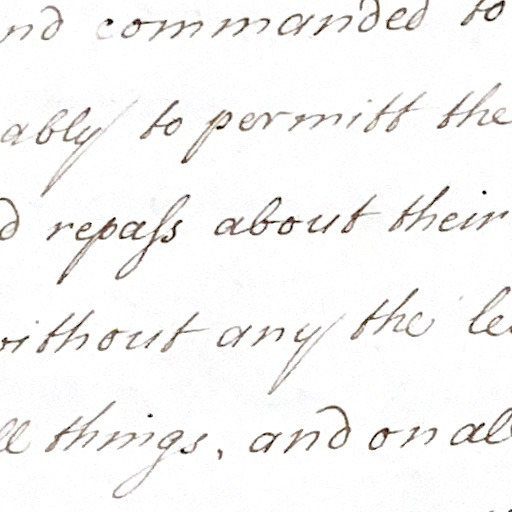 nd commanded to
ably to permitt the
d repaſs about their
without any the le
ll things, and on al